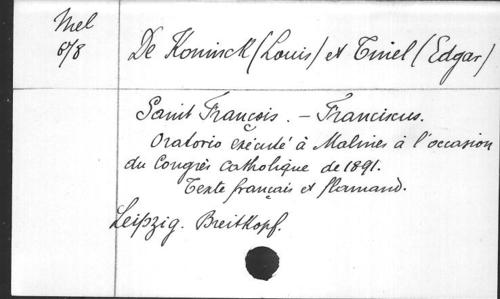 Mel
678
De Koninck (Louis) et Tinel (Edgar)
Saint François. - Franciscus.
Oratorio exécuté à Malines à l'occasion
du Congrès Catholique de 1891.
Texte français et flamand.
Leipzig. Breitkopf.